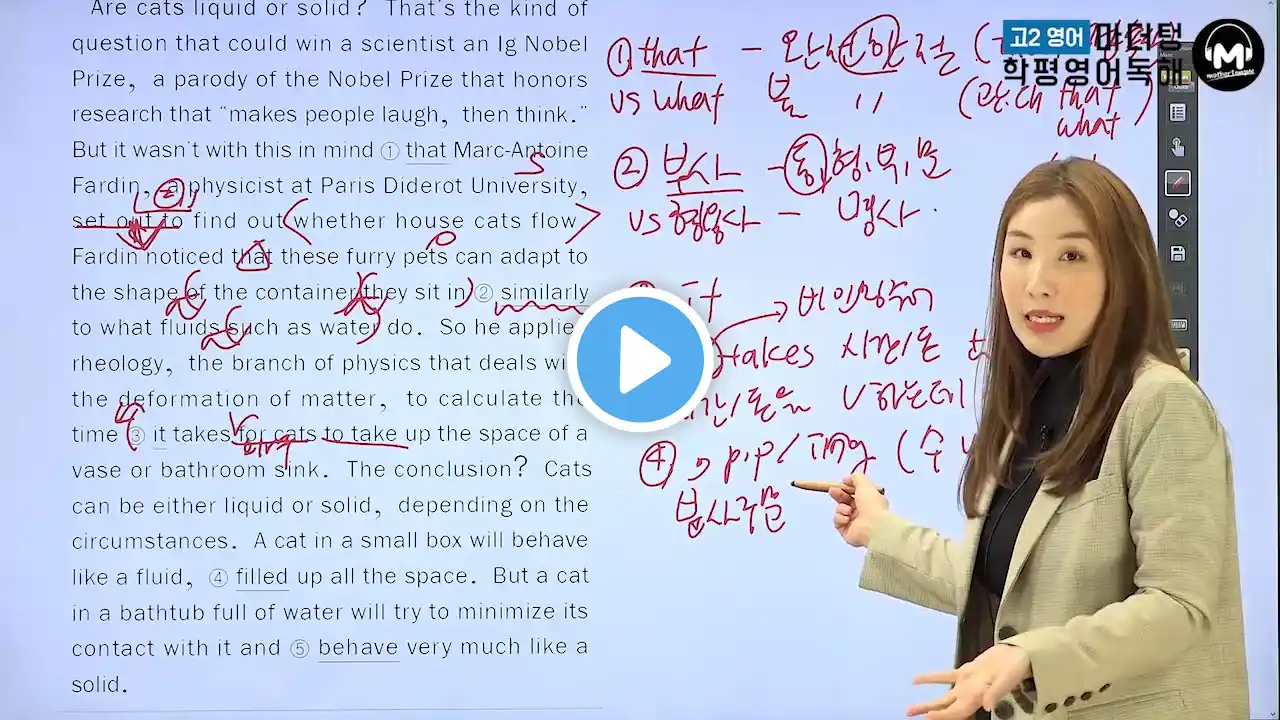 Are cats liquid or solid? That's the kind of
question that could
Prize, a parody of the Nobel Prize that honors
research that "makes people laugh, then think."
But it wasn't with this in mind ① that Marc-Antoine
Fardin, a physicist at Paris Diderot University,
set out to find out whether house cats flow.
Fardin noticed that these furry pets can adapt to
the shape of the container they sit in ② similarly
to what fluids such as do. So
rheology, the branch of physics that deals
the deformation of matter, to calculate
time ③ it takes to take up the space of a
vase or bathroom sink. The conclusion? Cats
can be either liquid or solid, depending on the
circumstances. A cat in a small box will behave
like a fluid, ④ filled up all the space. But a cat
in a bathtub full of water will try to minimize its
contact with it and behave very much like a
solid.
① that -
vs what 불 〃 (관·대 that
what
② 부사 - 동, 형, 부, 문
vs 형용사 - 명사
takes 시간/돈
④ , p.p/
고2 영어 마더텅
학평영어독해
M
mother tongue